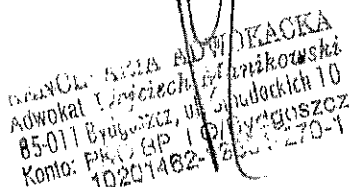 KANCELARIA ADWOKACKA
Adwokat Wojciech Manikowski
85-011 Bydgoszcz, ul. Śniadeckich 10
Konto: PKO BP I O/Bydgoszcz
10201462- 270-1